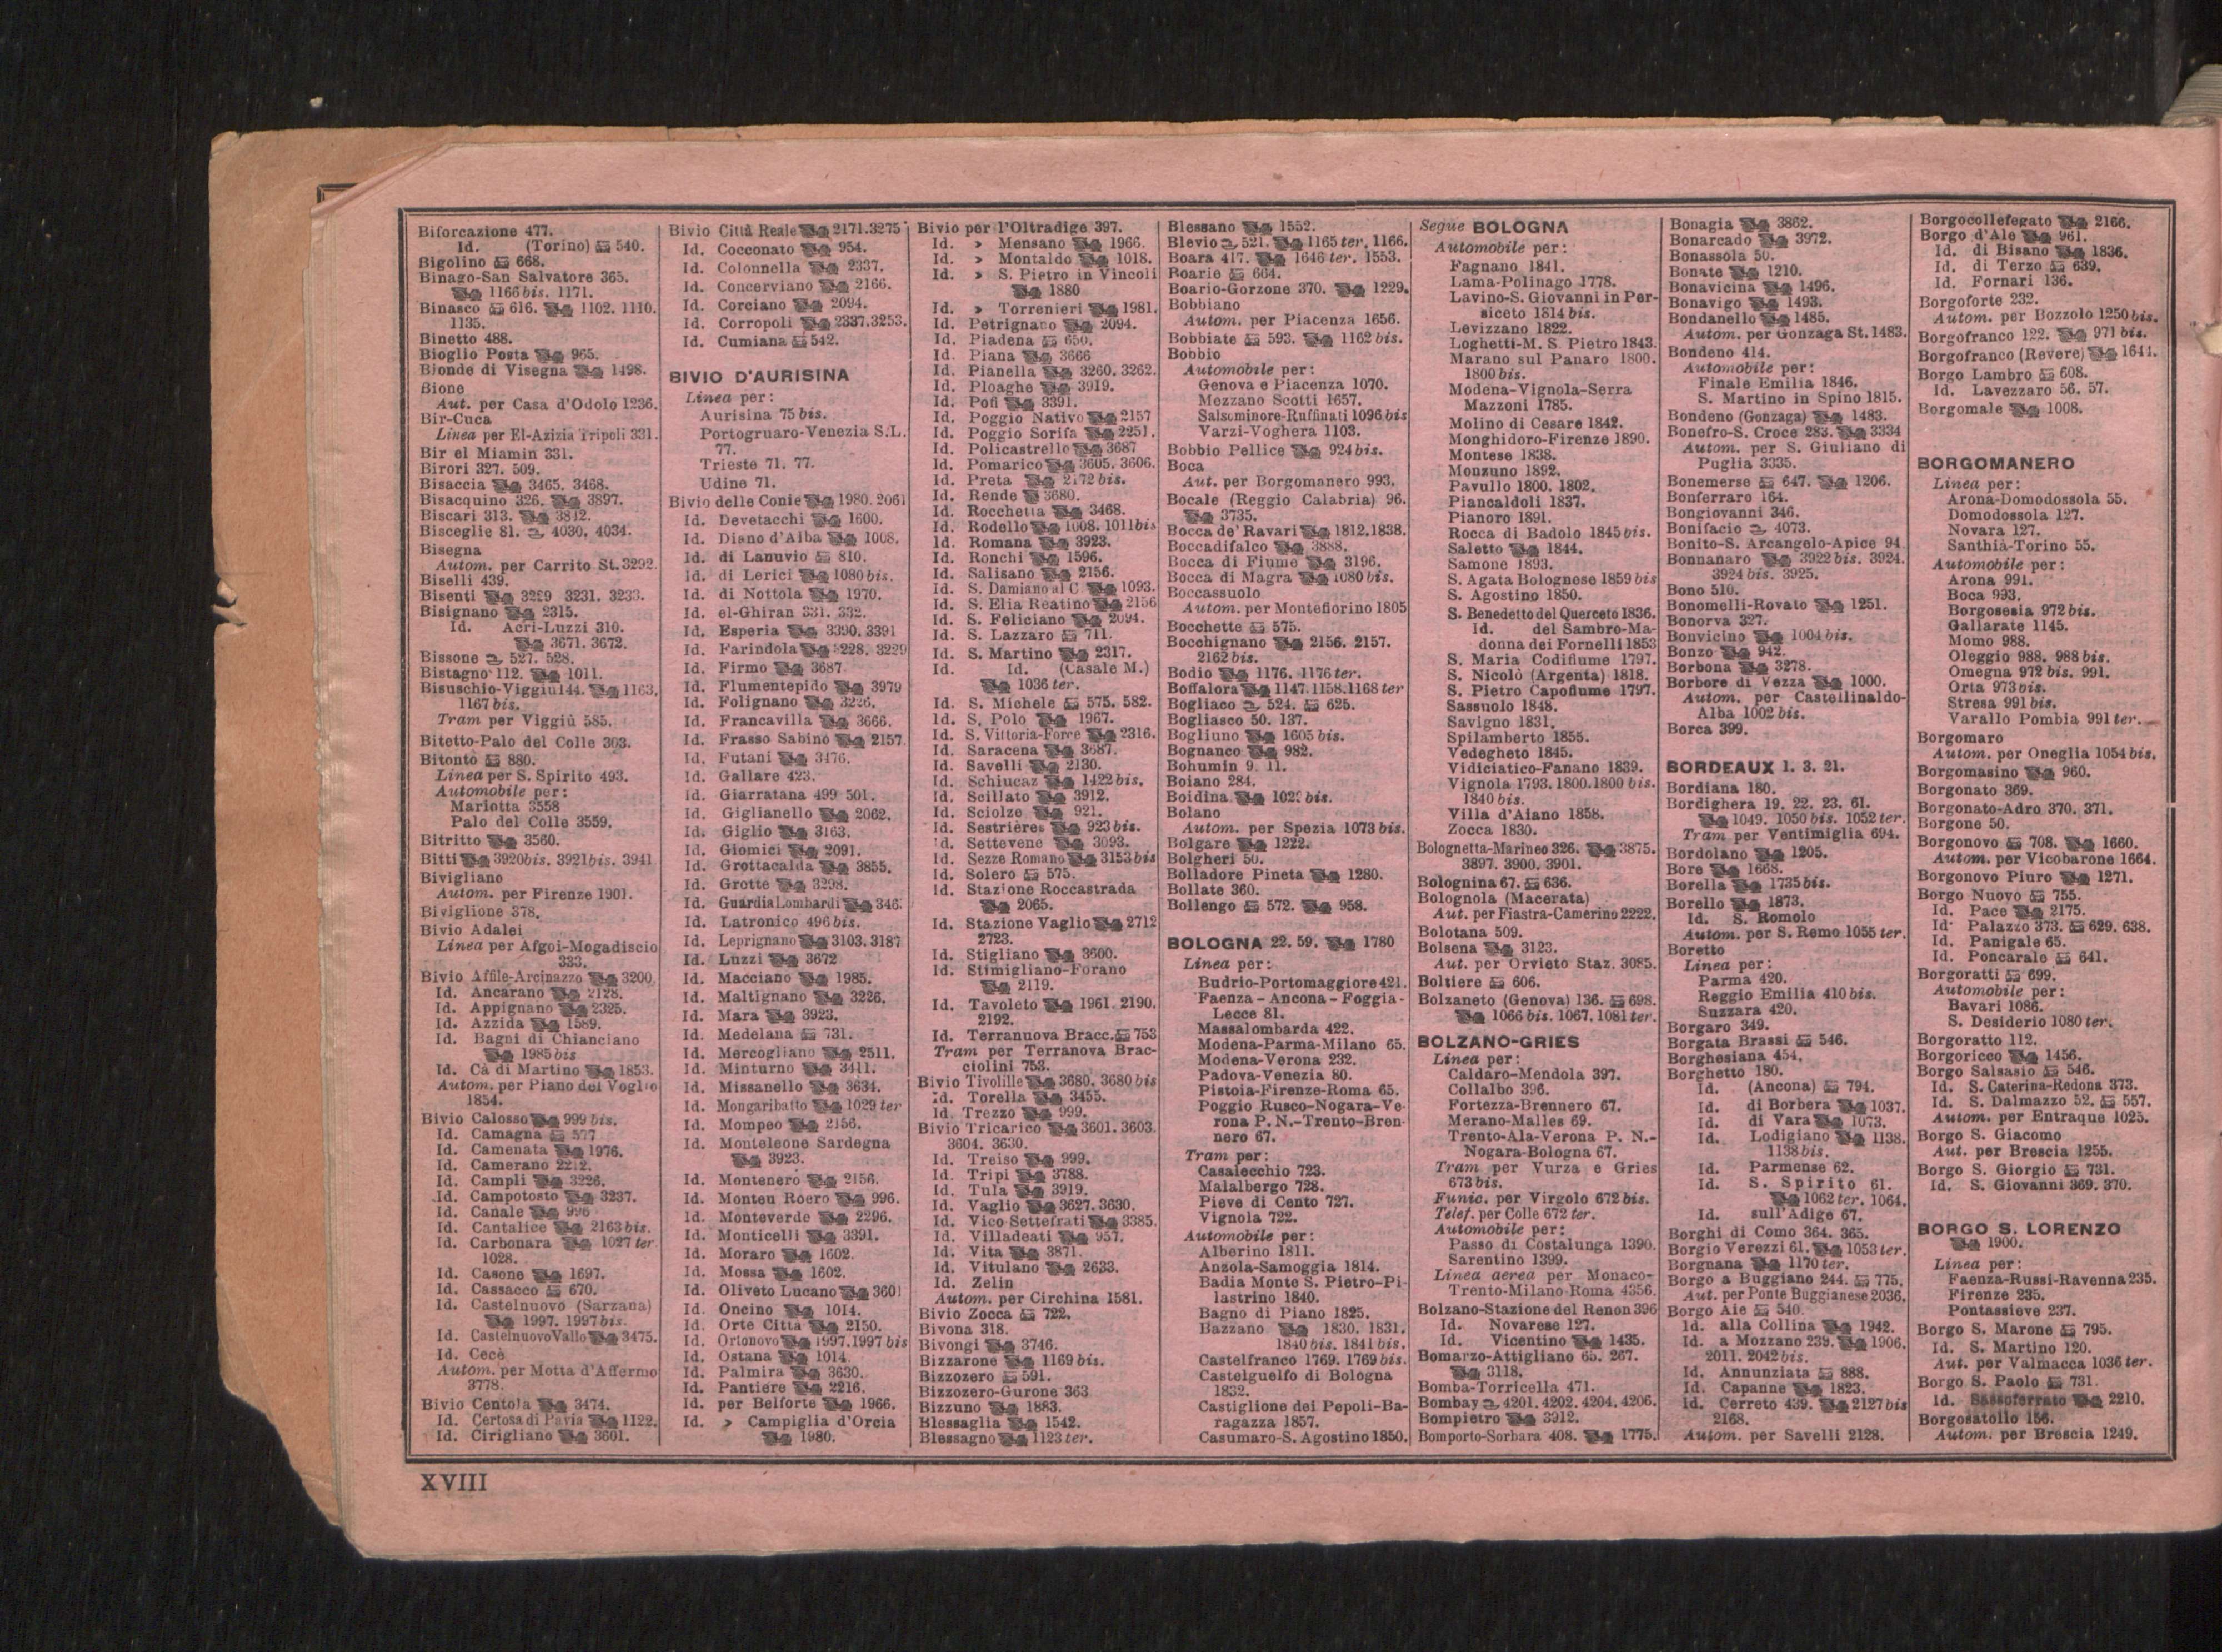 Biforcazione 477.
Id. (Torino) 540.
Bigolino 668.
Binago-San Salvatore 365.
1166 bis. 1171.
Binasco 616. 1102. 1110.
1135.
Binetto 488.
Bioglio Posta 965.
Bionde di Visegna 1498.
Bione
Aut. per Casa d'Odolo 1236.
Bir-Cuca
Linea per El-Azizia Tripoli 331.
Bir el Miamin 331.
Birori 327. 509.
Bisaccia 3465. 3468.
Bisacquino 326. 3897.
Biscari 313. 3812.
Bisceglie 81. 4030. 4034.
Bisegna
Autom. per Carrito St. 3292.
Biselli 439.
Bisenti 3229 3231. 3233.
Bisignano 2315.
Id. Acri-Luzzi 310.
3671. 3672.
Bissone 527. 528.
Bistagno 112. 1011.
Bisuschio-Viggiù 144. 1163.
1167 bis.
Tram per Viggiù 585.
Bitetto-Palo del Colle 303.
Bitonto 880.
Linea per S. Spirito 493.
Automobile per:
Mariotta 3558
Palo del Colle 3559.
Bitritto 3560.
Bitti 3920 bis. 3921 bis. 3941
Bivigliano
Autom. per Firenze 1901.
Biviglione 378.
Bivio Adalei
Linea per Afgoi-Mogadiscio
333.
Bivio Affile-Arcinazzo 3200.
Id. Ancarano 2128.
Id. Appignano 2325.
Id. Azzida 1589.
Id. Bagni di Chianciano
1985 bis
Id. Cà di Martino 1853.
Autom. per Piano dei Voglio
1854.
Bivio Calosso 999 bis.
Id. Camagna 577
Id. Camenata 1976.
Id. Camerano 2212.
Id. Campli 3226.
Id. Campotosto 3237.
Id. Canale 996
Id. Cantalice 2163 bis.
Id. Carbonara 1027 ter
1028.
Id. Casone 1697.
Id. Cassacco 670.
Id. Castelnuovo (Sarzana)
1997. 1997 bis.
Id. Castelnuovo Vallo 3475.
Id. Cecè
Autom. per Motta d'Affermo
3778.
Bivio Centola 3474.
Id. Certosa di Pavia 1122.
Id. Cirigliano 3601.
Bivio Città Reale 2171. 3275
Id. Cocconato 954.
Id. Colonnella 2337.
Id. Concerviano 2166.
Id. Corciano 2094.
Id. Corropoli 2337. 3253.
Id. Cumiana 542.
BIVIO D'AURISINA
Linea per:
Aurisina 75 bis.
Portogruaro-Venezia S.L.
77.
Trieste 71. 77.
Udine 71.
Bivio delle Conie 1980. 2061
Id. Devetacchi 1600.
Id. Diano d'Alba 1008.
Id. di Lanuvio 810.
Id. di Lerici 1080 bis.
Id. di Nottola 1970.
Id. el-Ghiran 331. 332.
Id. Esperia 3390. 3391
Id. Farindola 3228. 3229
Id. Firmo 3687
Id. Flumentepido 3979
Id. Folignano 3226.
Id. Francavilla 3666.
Id. Frasso Sabino 2157.
Id. Futani 3476.
Id. Gallare 423.
Id. Giarratana 499 501.
Id. Giglianello 2062.
Id. Giglio 3163.
Id. Giomici 2091.
Id. Grottacalda 3855.
Id. Grotte 3298.
Id. Guardia Lombardi 346
Id. Latronico 496 bis.
Id. Leprignano 3103. 3187
Id. Luzzi 3672
Id. Macciano 1985.
Id. Maltignano 3226.
Id. Mara 3923.
Id. Medelana 731.
Id. Mercogliano 2511.
Id. Minturno 3411.
Id. Missanello 3634.
Id. Mongaribatto 1029 ter
Id. Mompeo 2156.
Id. Monteleone Sardegna
3923.
Id. Montenero 2156.
Id. Monteu Roero 996.
Id. Monteverde 2296.
Id. Monticelli 3391.
Id. Moraro 1602.
Id. Mossa 1602.
Id. Oliveto Lucano 3601
Id. Oncino 1014.
Id. Orte Città 2150.
Id. Ortonovo 1997. 1997 bis
Id. Ostana 1014.
Id. Palmira 3630.
Id. Pantiere 2216.
Id. per Belforte 1966.
Id. » Campiglia d'Orcia
1980.
Bivio per l'Oltradige 397.
Id. » Mensano 1966.
Id. » Montaldo 1018.
Id. » S. Pietro in Vincoli
1880
Id. » Torrenieri 1981.
Id. Petrignano 2094.
Id. Piadena 650.
Id. Piana 3666
Id. Pianella 3260. 3262.
Id. Ploaghe 3919.
Id. Pofi 3391.
Id. Poggio Nativo 2157
Id. Poggio Sorifa 2251.
Id. Policastrello 3687
Id. Pomarico 3605. 3606.
Id. Preta 2172 bis.
Id. Rende 3680.
Id. Rocchetta 3468.
Id. Rodello 1008. 1011 bis
Id. Romana 3923.
Id. Ronchi 1596.
Id. Salisano 2156.
Id. S. Damiano al C. 1093.
Id. S. Elia Reatino 2156
Id. S. Feliciano 2094.
Id. S. Lazzaro 711.
Id. S. Martino 2317.
Id. Id. (Casale M.)
1036 ter.
Id. S. Michele 575. 582.
Id. S. Polo 1967.
Id. S. Vittoria-Force 2316.
Id. Saracena 3687.
Id. Savelli 2130.
Id. Schiucaz 1422 bis.
Id. Scillato 3912.
Id. Sciolze 921.
Id. Sestrières 923 bis.
Id. Settevene 3093.
Id. Sezze Romano 3153 bis
Id. Solero 575.
Id. Stazione Roccastrada
2065.
Id. Stazione Vaglio 2712
2723.
Id. Stigliano 3600.
Id. Stimigliano-Forano
2119.
Id. Tavoleto 1961. 2190.
2192.
Id. Terranuova Bracc. 753
Tram per Terranova Brac-
ciolini 753.
Bivio Tivolille 3680. 3680 bis
Id. Torella 3455.
Id. Trezzo 999.
Bivio Tricarico 3601. 3603.
3604. 3630.
Id. Treiso 999.
Id. Tripi 3788.
Id. Tula 3919.
Id. Vaglio 3627. 3630.
Id. Vico Settefrati 3385.
Id. Villadeati 957.
Id. Vita 3871.
Id. Vitulano 2633.
Id. Zelin
Autom. per Circhina 1581.
Bivio Zocca 722.
Bivona 318.
Bivongi 3746.
Bizzarone 1169 bis.
Bizzozero 591.
Bizzozero-Gurone 363
Bizzuno 1883.
Blessaglia 1542.
Blessagno 1123 ter.
Blessano 1552.
Blevio 521. 1165 ter. 1166.
Boara 417. 1646 ter. 1553.
Boario 664.
Boario-Gorzone 370. 1229.
Bobbiano
Autom. per Piacenza 1656.
Bobbiate 593. 1162 bis.
Bobbio
Automobile per:
Genova e Piacenza 1070.
Mezzano Scotti 1657.
Salsominore-Ruffinati 1096 bis
Varzi-Voghera 1103.
Bobbio Pellice 924 bis.
Boca
Aut. per Borgomanero 993.
Bocale (Reggio Calabria) 96.
3735.
Bocca de' Ravari 1812. 1838.
Boccadifalco 3888.
Bocca di Fiume 3196.
Bocca di Magra 1080 bis.
Boccassuolo
Autom. per Montefiorino 1805
Bocchette 575.
Bocchignano 2156. 2157.
2162 bis.
Bodio 1176. 1176 ter.
Boffalora 1147. 1158. 1168 ter
Bogliaco 524. 625.
Bogliasco 50. 137.
Bogliuno 1605 bis.
Bognanco 982.
Bohumin 9. 11.
Boiano 284.
Boidina 102 bis.
Bolano
Autom. per Spezia 1073 bis.
Bolgare 1222.
Bolgheri 50.
Bolladore Pineta 1280.
Bollate 360.
Bollengo 572. 958.
BOLOGNA 22. 59. 1780
Linea per:
Budrio-Portomaggiore 421.
Faenza-Ancona-Foggia-
Lecce 81.
Massalombarda 422.
Modena-Parma-Milano 65.
Modena-Verona 232.
Padova-Venezia 80.
Pistoia-Firenze-Roma 65.
Poggio Rusco-Nogara-Ve-
rona P. N.-Trento-Bren-
nero 67.
Tram per:
Casalecchio 723.
Malalbergo 728.
Pieve di Cento 727.
Vignola 722.
Automobile per:
Alberino 1811.
Anzola-Samoggia 1814.
Badia Monte S. Pietro-Pi-
lastrino 1840.
Bagno di Piano 1825.
Bazzano 1830. 1831.
1840 bis. 1841 bis.
Castelfranco 1769. 1769 bis.
Castelguelfo di Bologna
1832.
Castiglione dei Pepoli-Ba-
ragazza 1857.
Casumaro-S. Agostino 1850.
Segue BOLOGNA
Automobile per:
Fagnano 1841.
Lama-Polinago 1778.
Lavino-S. Giovanni in Per-
siceto 1814 bis.
Levizzano 1822.
Loghetti-M. S. Pietro 1843.
Marano sul Panaro 1800.
1800 bis.
Modena-Vignola-Serra
Mazzoni 1785.
Molino di Cesare 1842.
Monghidoro-Firenze 1890.
Montese 1838.
Monzuno 1892.
Pavullo 1800. 1802.
Piancaldoli 1837.
Pianoro 1891.
Rocca di Badolo 1845 bis.
Saletto 1844.
Samone 1893.
S. Agata Bolognese 1859 bis
S. Agostino 1850.
S. Benedetto del Querceto 1836.
Id. del Sambro-Ma-
donna dei Fornelli 1853
S. Maria Codifiume 1797.
S. Nicolò (Argenta) 1818.
S. Pietro Capofiume 1797.
Sassuolo 1848.
Savigno 1831.
Spilamberto 1855.
Vedegheto 1845.
Vidiciatico-Fanano 1839.
Vignola 1793. 1800. 1800 bis.
1840 bis.
Villa d'Aiano 1858.
Zocca 1830.
Bolognetta-Marineo 326. 3875.
3897. 3900. 3901.
Bolognina 67. 636.
Bolognola (Macerata)
Aut. per Fiastra-Camerino 2222.
Bolotana 509.
Bolsena 3123.
Aut. per Orvieto Staz. 3085.
Boltiere 606.
Bolzaneto (Genova) 136. 698.
1066 bis. 1067. 1081 ter.
BOLZANO-GRIES
Linea per:
Caldaro-Mendola 397.
Collalbo 396.
Fortezza-Brennero 67.
Merano-Malles 69.
Trento-Ala-Verona P. N.-
Nogara-Bologna 67.
Tram per Vurza e Gries
673 bis.
Funic. per Virgolo 672 bis.
Telef. per Colle 672 ter.
Automobile per:
Passo di Costalunga 1390.
Sarentino 1399.
Linea aerea per Monaco-
Trento-Milano Roma 4356.
Bolzano-Stazione del Renon 396
Id. Novarese 127.
Id. Vicentino 1435.
Bomarzo-Attigliano 65. 267.
3118.
Bomba-Torricella 471.
Bombay 4201. 4202. 4204. 4206.
Bompietro 3912.
Bomporto-Sorbara 408. 1775.
Bonagia 3862.
Bonarcado 3972.
Bonassola 50.
Bonate 1210.
Bonavicina 1496.
Bonavigo 1493.
Bondanello 1485.
Autom. per Gonzaga St. 1483.
Bondeno 414.
Automobile per:
Finale Emilia 1846.
S. Martino in Spino 1815.
Bondeno (Gonzaga) 1483.
Bonefro-S. Croce 283. 3334
Autom. per S. Giuliano di
Puglia 3335.
Bonemerse 647. 1206.
Bonferraro 164.
Bongiovanni 346.
Bonifacio 4073.
Bonito-S. Arcangelo-Apice 94
Bonnanaro 3922 bis. 3924.
3924 bis. 3925.
Bono 510.
Bonomelli-Rovato 1251.
Bonorva 327.
Bonvicino 1004 bis.
Bonzo 942.
Borbona 3278.
Borbore di Vezza 1000.
Autom. per Castellinaldo-
Alba 1002 bis.
Borca 399.
BORDEAUX 1. 3. 21.
Bordiana 180.
Bordighera 19. 22. 23. 61.
1049. 1050 bis. 1052 ter.
Tram per Ventimiglia 694.
Bordolano 1205.
Bore 1668.
Borella 1735 bis.
Borello 1873.
Id. S. Romolo
Autom. per S. Remo 1055 ter.
Boretto
Linea per:
Parma 420.
Reggio Emilia 410 bis.
Suzzara 420.
Borgaro 349.
Borgata Brassi 546.
Borghesiana 454.
Borghetto 180.
Id. (Ancona) 794.
Id. di Borbera 1037.
Id. di Vara 1073.
Id. Lodigiano 1138.
1138 bis.
Id. Parmense 62.
Id. S. Spirito 61.
1062 ter. 1064.
Id. sull'Adige 67.
Borghi di Como 364. 365.
Borgio Verezzi 61. 1053 ter.
Borgnana 1170 ter.
Borgo a Buggiano 244. 775.
Aut. per Ponte Buggianese 2036.
Borgo Aie 540.
Id. alla Collina 1942.
Id. a Mozzano 239. 1906.
2011. 2042 bis.
Id. Annunziata 888.
Id. Capanne 1823.
Id. Cerreto 439. 2127 bis
2168.
Autom. per Savelli 2128.
Borgocollefegato 2166.
Borgo d'Ale 961.
Id. di Bisano 1836.
Id. di Terzo 639.
Id. Fornari 136.
Borgoforte 232.
Autom. per Bozzolo 1250 bis.
Borgofranco 122. 971 bis.
Borgofranco (Revere) 1641.
Borgo Lambro 608.
Id. Lavezzaro 56. 57.
Borgomale 1008.
BORGOMANERO
Linea per:
Arona-Domodossola 55.
Domodossola 127.
Novara 127.
Santhià-Torino 55.
Automobile per:
Arona 991.
Boca 993.
Borgosesia 972 bis.
Gallarate 1145.
Momo 988.
Oleggio 988. 988 bis.
Omegna 972 bis. 991.
Orta 973 bis.
Stresa 991 bis.
Varallo Pombia 991 ter.
Borgomaro
Autom. per Oneglia 1054 bis.
Borgomasino 960.
Borgonato 369.
Borgonato-Adro 370. 371.
Borgone 50.
Borgonovo 708. 1660.
Autom. per Vicobarone 1664.
Borgonovo Piuro 1271.
Borgo Nuovo 755.
Id. Pace 2175.
Id. Palazzo 373. 629. 638.
Id. Panigale 65.
Id. Poncarale 641.
Borgoratti 699.
Automobile per:
Bavari 1086.
S. Desiderio 1080 ter.
Borgoratto 112.
Borgoricco 1456.
Borgo Salsasio 546.
Id. S. Caterina-Redona 373.
Id. S. Dalmazzo 52. 557.
Autom. per Entraque 1025.
Borgo S. Giacomo
Aut. per Brescia 1255.
Borgo S. Giorgio 731.
Id. S. Giovanni 369. 370.
BORGO S. LORENZO
1900.
Linea per:
Faenza-Russi-Ravenna 235.
Firenze 235.
Pontassieve 237.
Borgo S. Marone 795.
Id. S. Martino 120.
Aut. per Valmacca 1036 ter.
Borgo S. Paolo 731.
Id. Sassoferrato 2210.
Borgosatollo 156.
Autom. per Brescia 1249.
XVIII